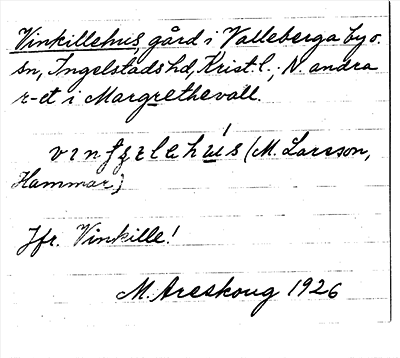 Vinkillehus gård i Valleberga by o.
sn, Ingelstads hd, Krist. l.; N. andra
r-et i Margrethevall.
(M. Larsson,
Hammar)
Jfr. Vinkille!
M. Areskoug 1926